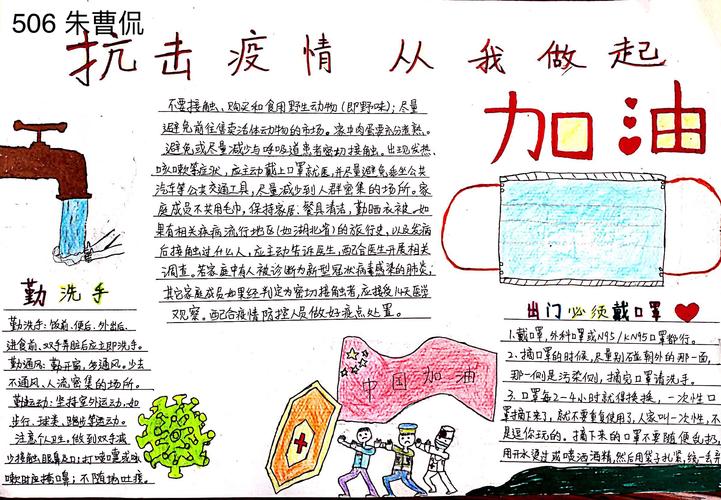 506 朱曹侃
抗击疫情 从我做起
不要接触、购买和食用野生动物(即野味);尽量
避免前往售卖活体动物的市场。家中肉蛋要充分煮熟、
避免或尽量减少与呼吸道患者密切接触。出现发热、
咳嗽等症状,应主动戴上口罩就医,并尽量避免乘坐公共
汽车等公共交通工具,尽量减少到人群密集的场所。家
庭成员不共用毛巾,保持家居、餐具清洁,勤晒衣被。如
果有相关疾病流行地区(如湖北省)的旅行史,以及发病
后接触过什么人,应主动告诉医生,配合医生开展相关
调查。若家庭中有人被诊断为新型冠状病毒感染的肺炎,
其它家庭成员如果经判定为密切接触者,应接受14天医学
观察。配合疫情防控人员做好疫点处置。
加油
勤洗手
勤洗手:饭前、便后、外出后、
进食前、双手弄脏后应主即洗手。
勤通风:勤开窗,多通风。少去
不通风、人流密集的场所。
勤运动:坚持室外运动,如
步行、球类、跑步等运动。
注意个卫生,做到双手减
少接触眼鼻口;打喷嚏或咳
嗽时应捂口鼻;不随地吐痰。
中国加油
出门必须戴口罩
1.戴口罩,外科口罩或N95/KN95口罩都行。
2.摘口罩的时候,尽量别碰朝外的那一面,
那一侧是污染侧,摘完口罩请洗手。
3.口罩每2-4小时就得换换,一次性口
罩摘下来了,就不要重复使用了,人家叫一次性,不
是逗你玩的。摘下来的口罩不要随便乱扔,
用开水烫过或喷洒酒精,然后用袋子扎紧,统一丢弃